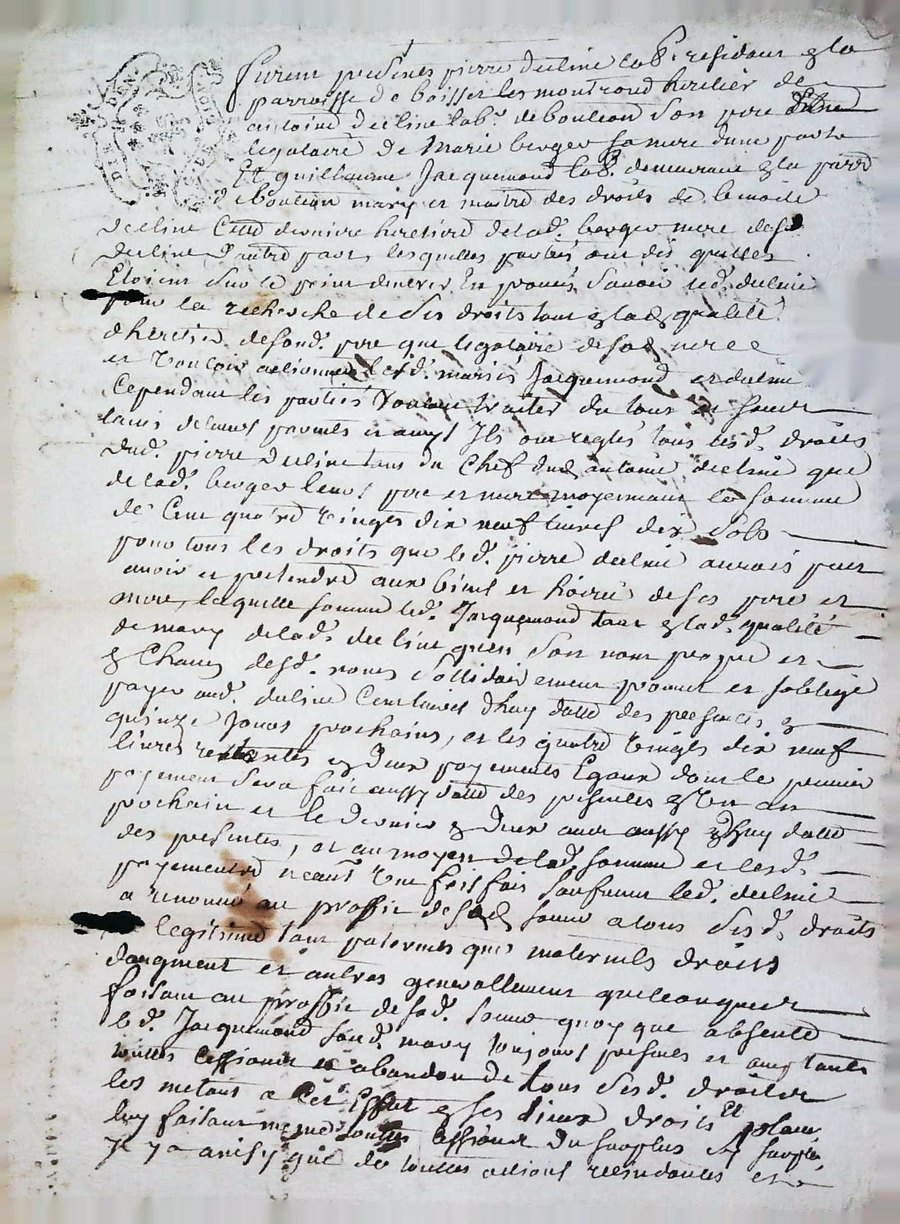 Furent presents pierre decline lab.r residant & la
parroisse de boisset les montrond heritier de
antoine decline lab.r de boutean son pere
legataire de Marie berger sa mere dune parte
Et guilhaume Jacquemond lab.r demeurant & la parr
mary et maitre des droits de benoite
decline Cette derniere heretiere de lad. berger mere desd.
decline d'autre part, lesquelles parties ont dit quelles
Etoient sur le point dentrer En procés, Savoir led. decline
pour la recherche de ses droits tant & lad qualité
dheretier de sond. pere que legataire de sad mere
et vouloir actionner lesd. mariés Jacquemond et decline
Cependant les parties voulant traiter du tout
lavis de leurs parents et amys Ils ont reglés tous lesd. droits
dud. pierre decline tant du Chef dud antoine decline que
de lad. berger leurs pere et mere moyennant la somme
de Cent quatre vingts dix neuf livres dix sols
pour tous les droits que led. pierre decline auroit peut
avoir et pretendre aux biens et hoirie de ses pere et
mere, laquelle somme led. Jacquemond tant & lad. qualité
de mary de lad. decline quen son nom propre et
& Chacun desd. noms sollidairement promet et soblige
payer aud. decline Cent livres dhuy datte des presentes &
quinze Jours prochains, et les quatre vingts dix neuf
livres restantes & Deux payements Egaux dont le premier
payement sera fait aussy datte des presentes & Un an
prochain et le dernier & Deux ans aussy dhuy datte
des presentes, et au moyen de lad. somme et lesd.
payements etants Une fois fait led. decline
a renoncé au proffit de sad soeur a tous sesd. droits
legitime tant paternels que maternels droits
daugment et autres generallement quelconques
faisant au proffit de sad. soeur quoy que absente
led. Jacquemond sond. mary toujours present et acceptant
toutes cession et abandon de tous sesd. droits
les metant a Cet Effet & ses lieux droits Et place
luy faisant meme toutes cession du surplus
Jl y a ainsy que de toutes actions residantes et